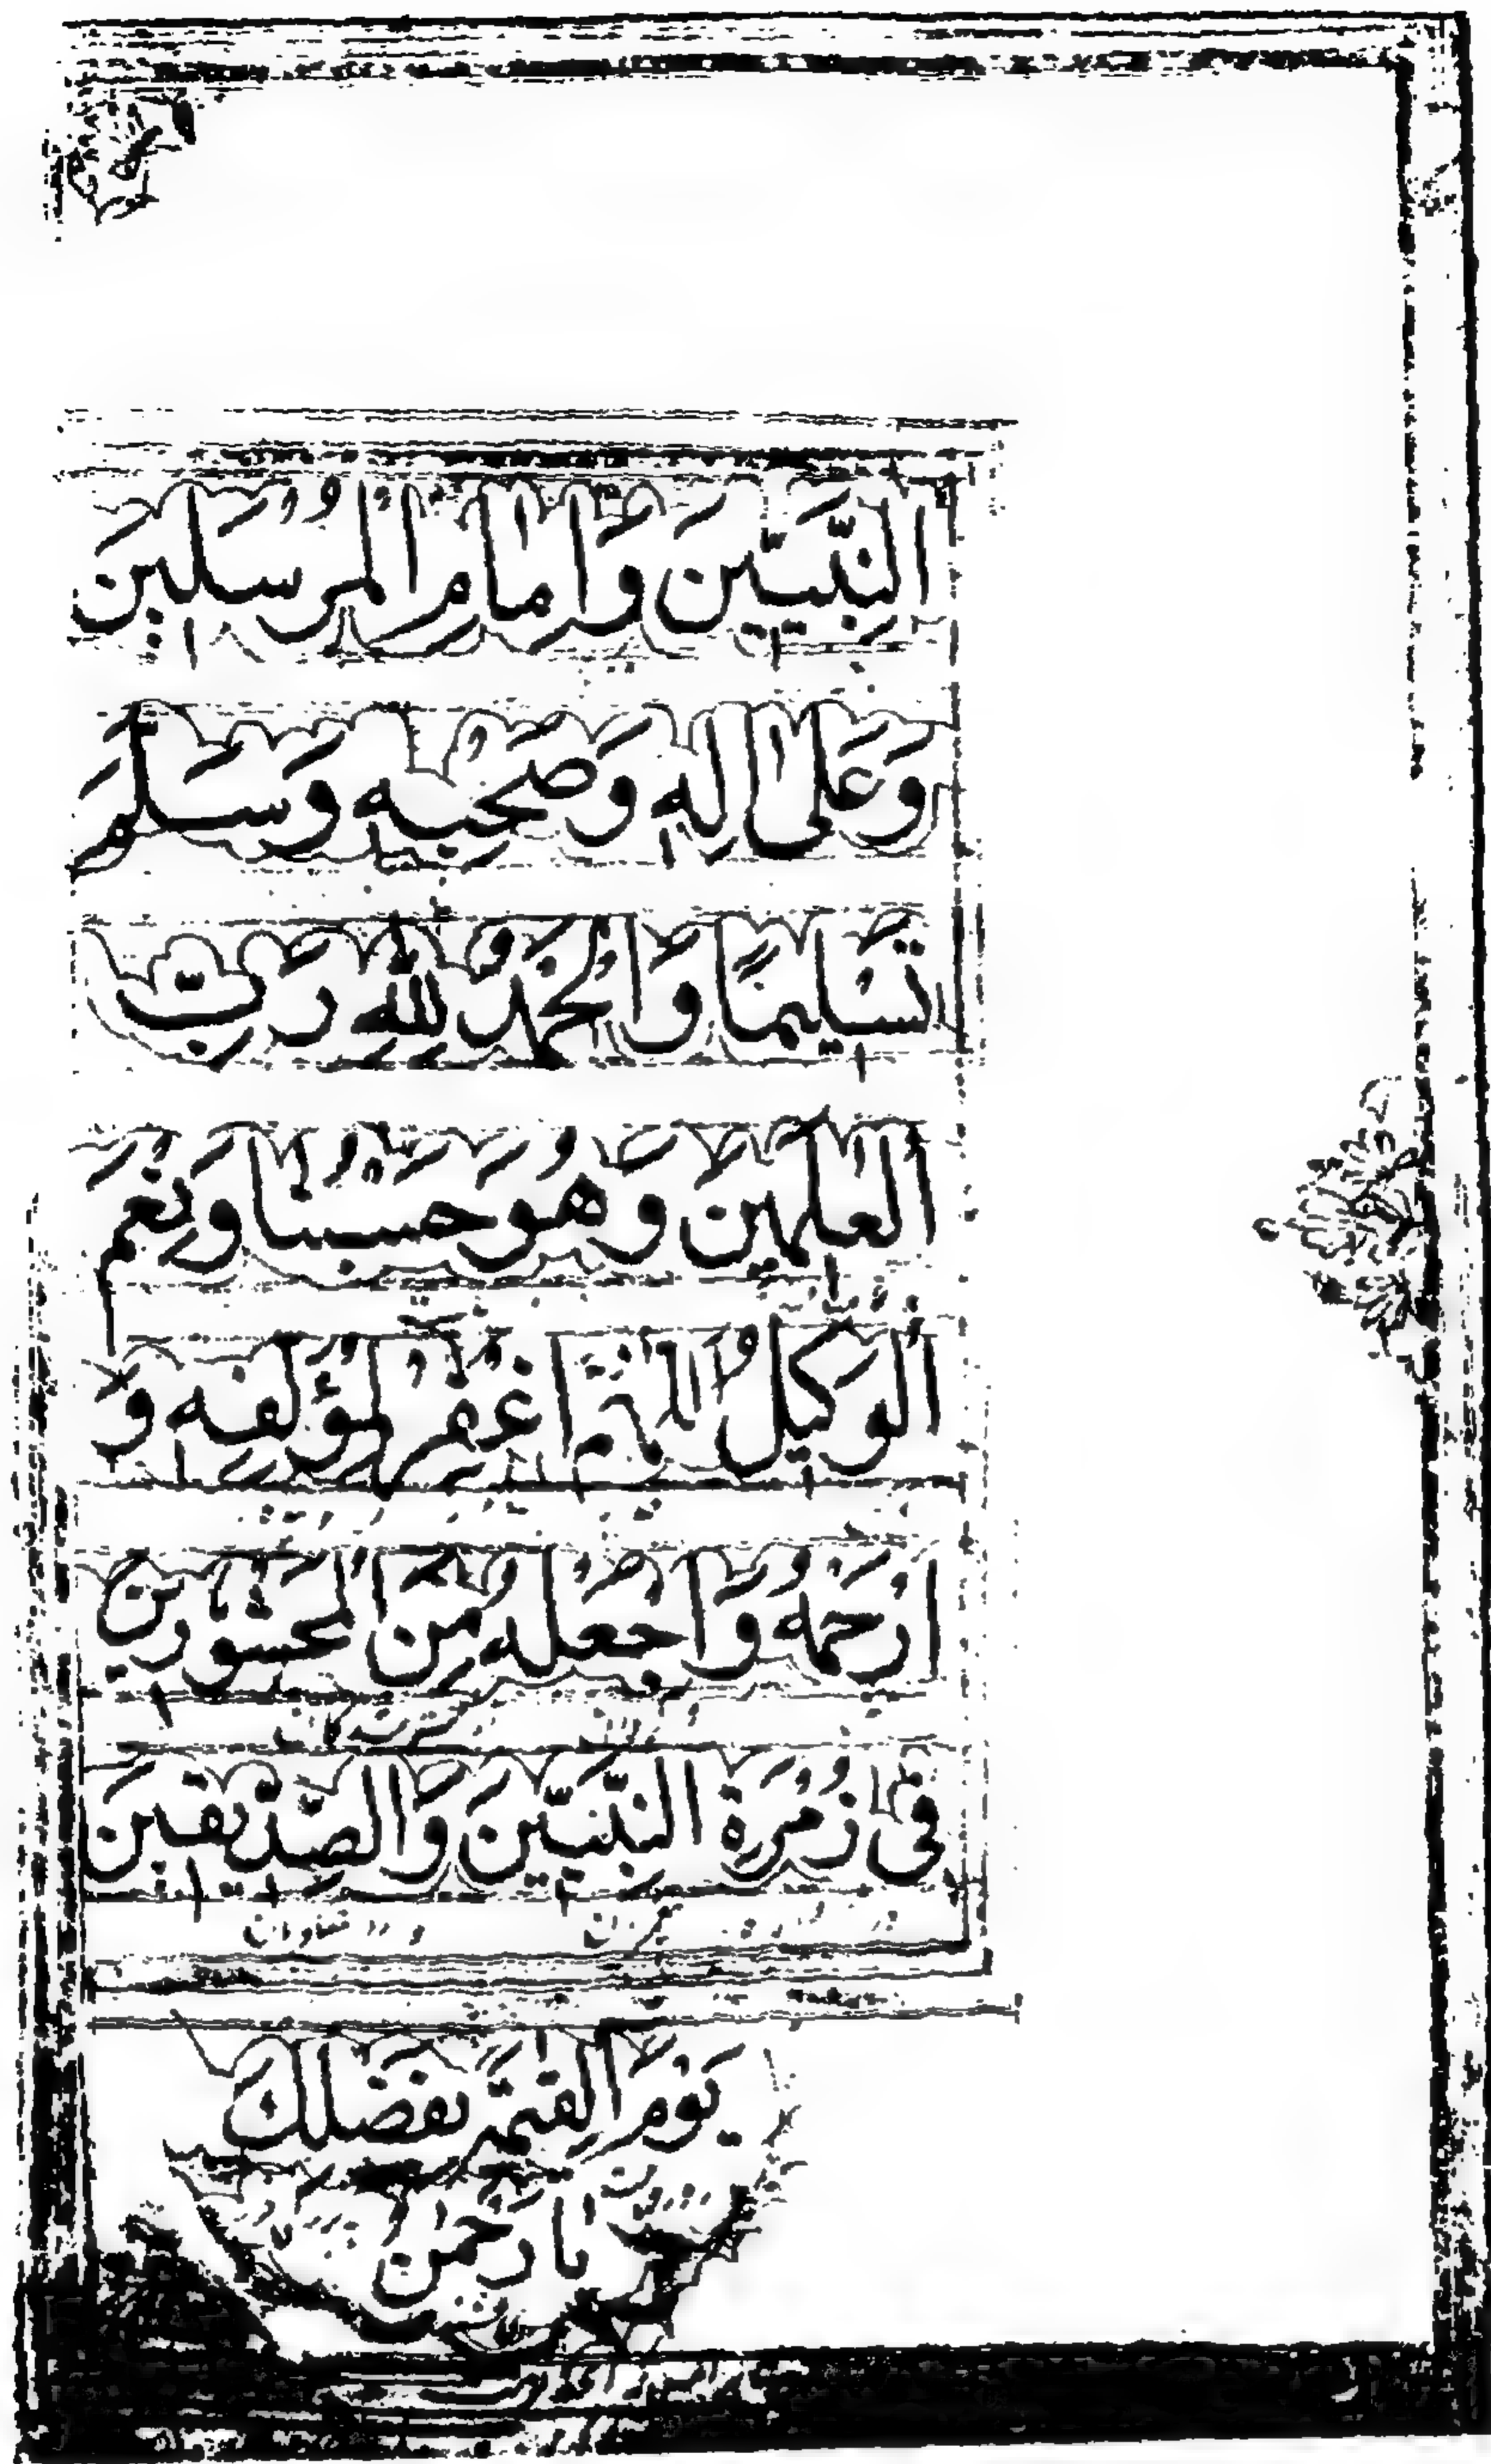 النَّبِيِّينَ وَاِمَامِ الْمُرْسَلِينَ
وَعَلٰى اٰلِهٖ وَصَحْبِهٖ وَسَلِّمْ
تَسْلِيمًا وَالْحَمْدُ لِلّٰهِ رَبِّ
الْعٰلَمِينَ وَهُوَ حَسْبُنَا وَنِعْمَ
الْوَكِيلُ اللّٰهُمَّ اغْفِرْ لِمُؤَلِّفِهٖ وَ
ارْحَمْهُ وَاجْعَلْهُ مِنَ الْمَحْشُورِينَ
فِى زُمْرَةِ النَّبِيِّينَ وَالصِّدِّيقِينَ
يَوْمَ الْقِيٰمَةِ بِفَضْلِكَ
يَا رَحْمٰنُ